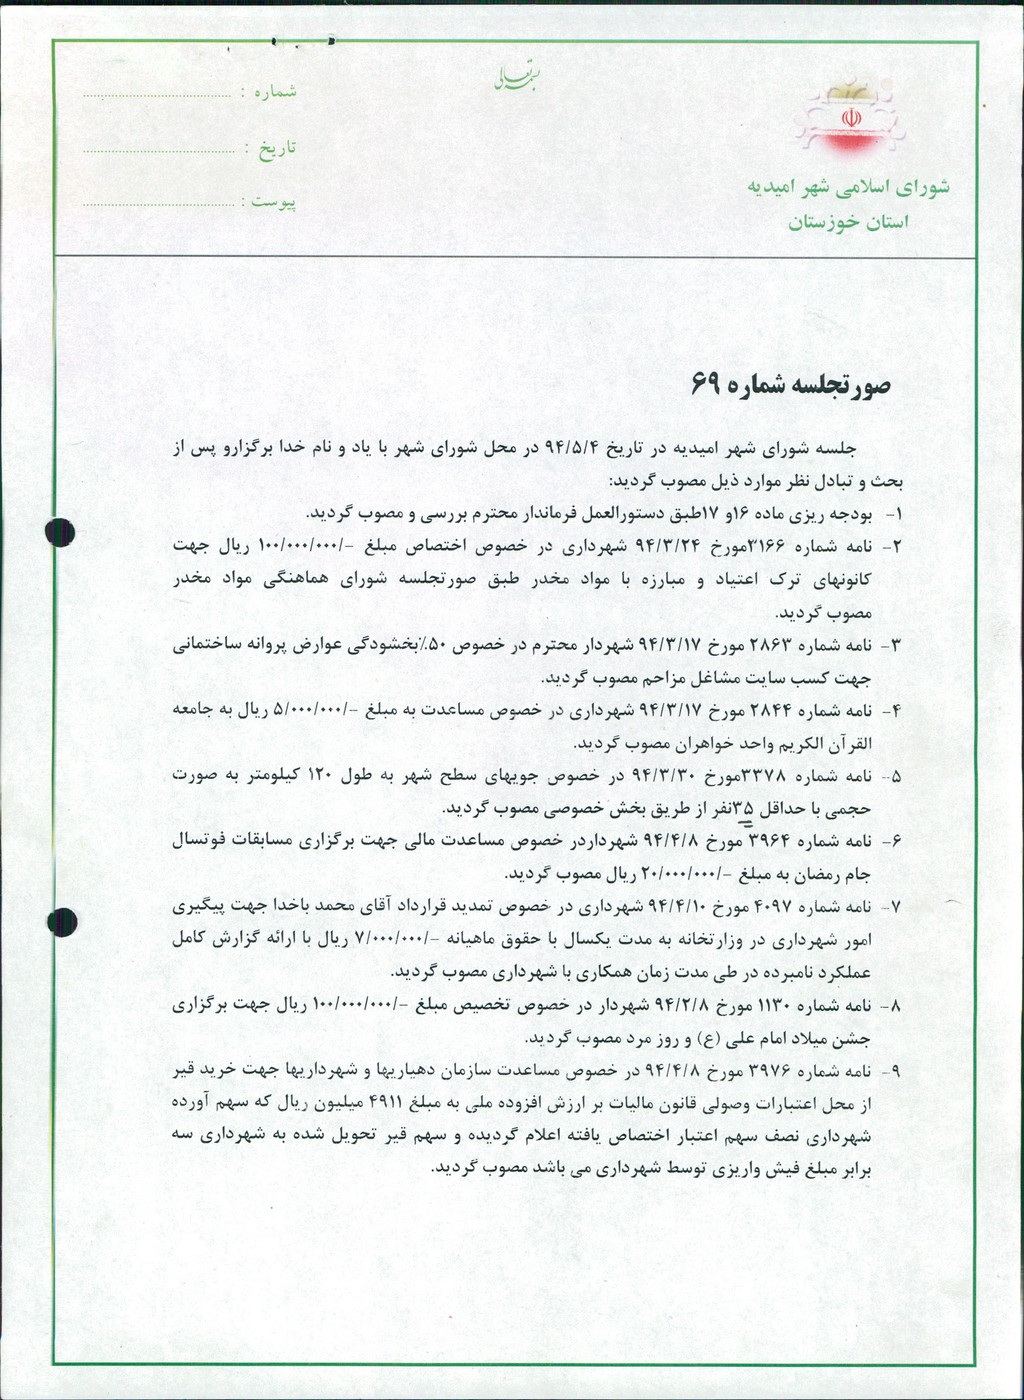 بسمه تعالی
شورای اسلامی شهر امیدیه
استان خوزستان
شماره :
تاریخ :
پیوست :
صورتجلسه شماره ۶۹
جلسه شورای شهر امیدیه در تاریخ ۹۴/۵/۴ در محل شورای شهر با یاد و نام خدا برگزارو پس از
بحث و تبادل نظر موارد ذیل مصوب گردید:
۱- بودجه ریزی ماده ۱۶و ۱۷طبق دستورالعمل فرماندار محترم بررسی و مصوب گردید.
۲- نامه شماره ۳۱۶۶مورخ ۹۴/۳/۲۴ شهرداری در خصوص اختصاص مبلغ -/۱۰۰/۰۰۰/۰۰۰ ریال جهت
کانونهای ترک اعتیاد و مبارزه با مواد مخدر طبق صورتجلسه شورای هماهنگی مواد مخدر
مصوب گردید.
۳- نامه شماره ۲۸۶۳ مورخ ۹۴/۳/۱۷ شهردار محترم در خصوص ۵۰٪بخشودگی عوارض پروانه ساختمانی
جهت کسب سایت مشاغل مزاحم مصوب گردید.
۴- نامه شماره ۲۸۴۴ مورخ ۹۴/۳/۱۷ شهرداری در خصوص مساعدت به مبلغ -/۵/۰۰۰/۰۰۰ ریال به جامعه
القرآن الکریم واحد خواهران مصوب گردید.
۵- نامه شماره ۳۳۷۸مورخ ۹۴/۳/۳۰ در خصوص جویهای سطح شهر به طول ۱۲۰ کیلومتر به صورت
حجمی با حداقل ۳۵نفر از طریق بخش خصوصی مصوب گردید.
۶- نامه شماره ۳۹۶۴ مورخ ۹۴/۴/۸ شهرداردر خصوص مساعدت مالی جهت برگزاری مسابقات فوتسال
جام رمضان به مبلغ -/۲۰/۰۰۰/۰۰۰ ریال مصوب گردید.
۷- نامه شماره ۴۰۹۷ مورخ ۹۴/۴/۱۰ شهرداری در خصوص تمدید قرارداد آقای محمد باخدا جهت پیگیری
امور شهرداری در وزارتخانه به مدت یکسال با حقوق ماهیانه -/۷/۰۰۰/۰۰۰ ریال با ارائه گزارش کامل
عملکرد نامبرده در طی مدت زمان همکاری با شهرداری مصوب گردید.
۸- نامه شماره ۱۱۳۰ مورخ ۹۴/۲/۸ شهردار در خصوص تخصیص مبلغ -/۱۰۰/۰۰۰/۰۰۰ ریال جهت برگزاری
جشن میلاد امام علی (ع) و روز مرد مصوب گردید.
۹- نامه شماره ۳۹۷۶ مورخ ۹۴/۴/۸ در خصوص مساعدت سازمان دهیاریها و شهرداریها جهت خرید قیر
از محل اعتبارات وصولی قانون مالیات بر ارزش افزوده ملی به مبلغ ۴۹۱۱ میلیون ریال که سهم آورده
شهرداری نصف سهم اعتبار اختصاص یافته اعلام گردیده و سهم قیر تحویل شده به شهرداری سه
برابر مبلغ فیش واریزی توسط شهرداری می باشد مصوب گردید.